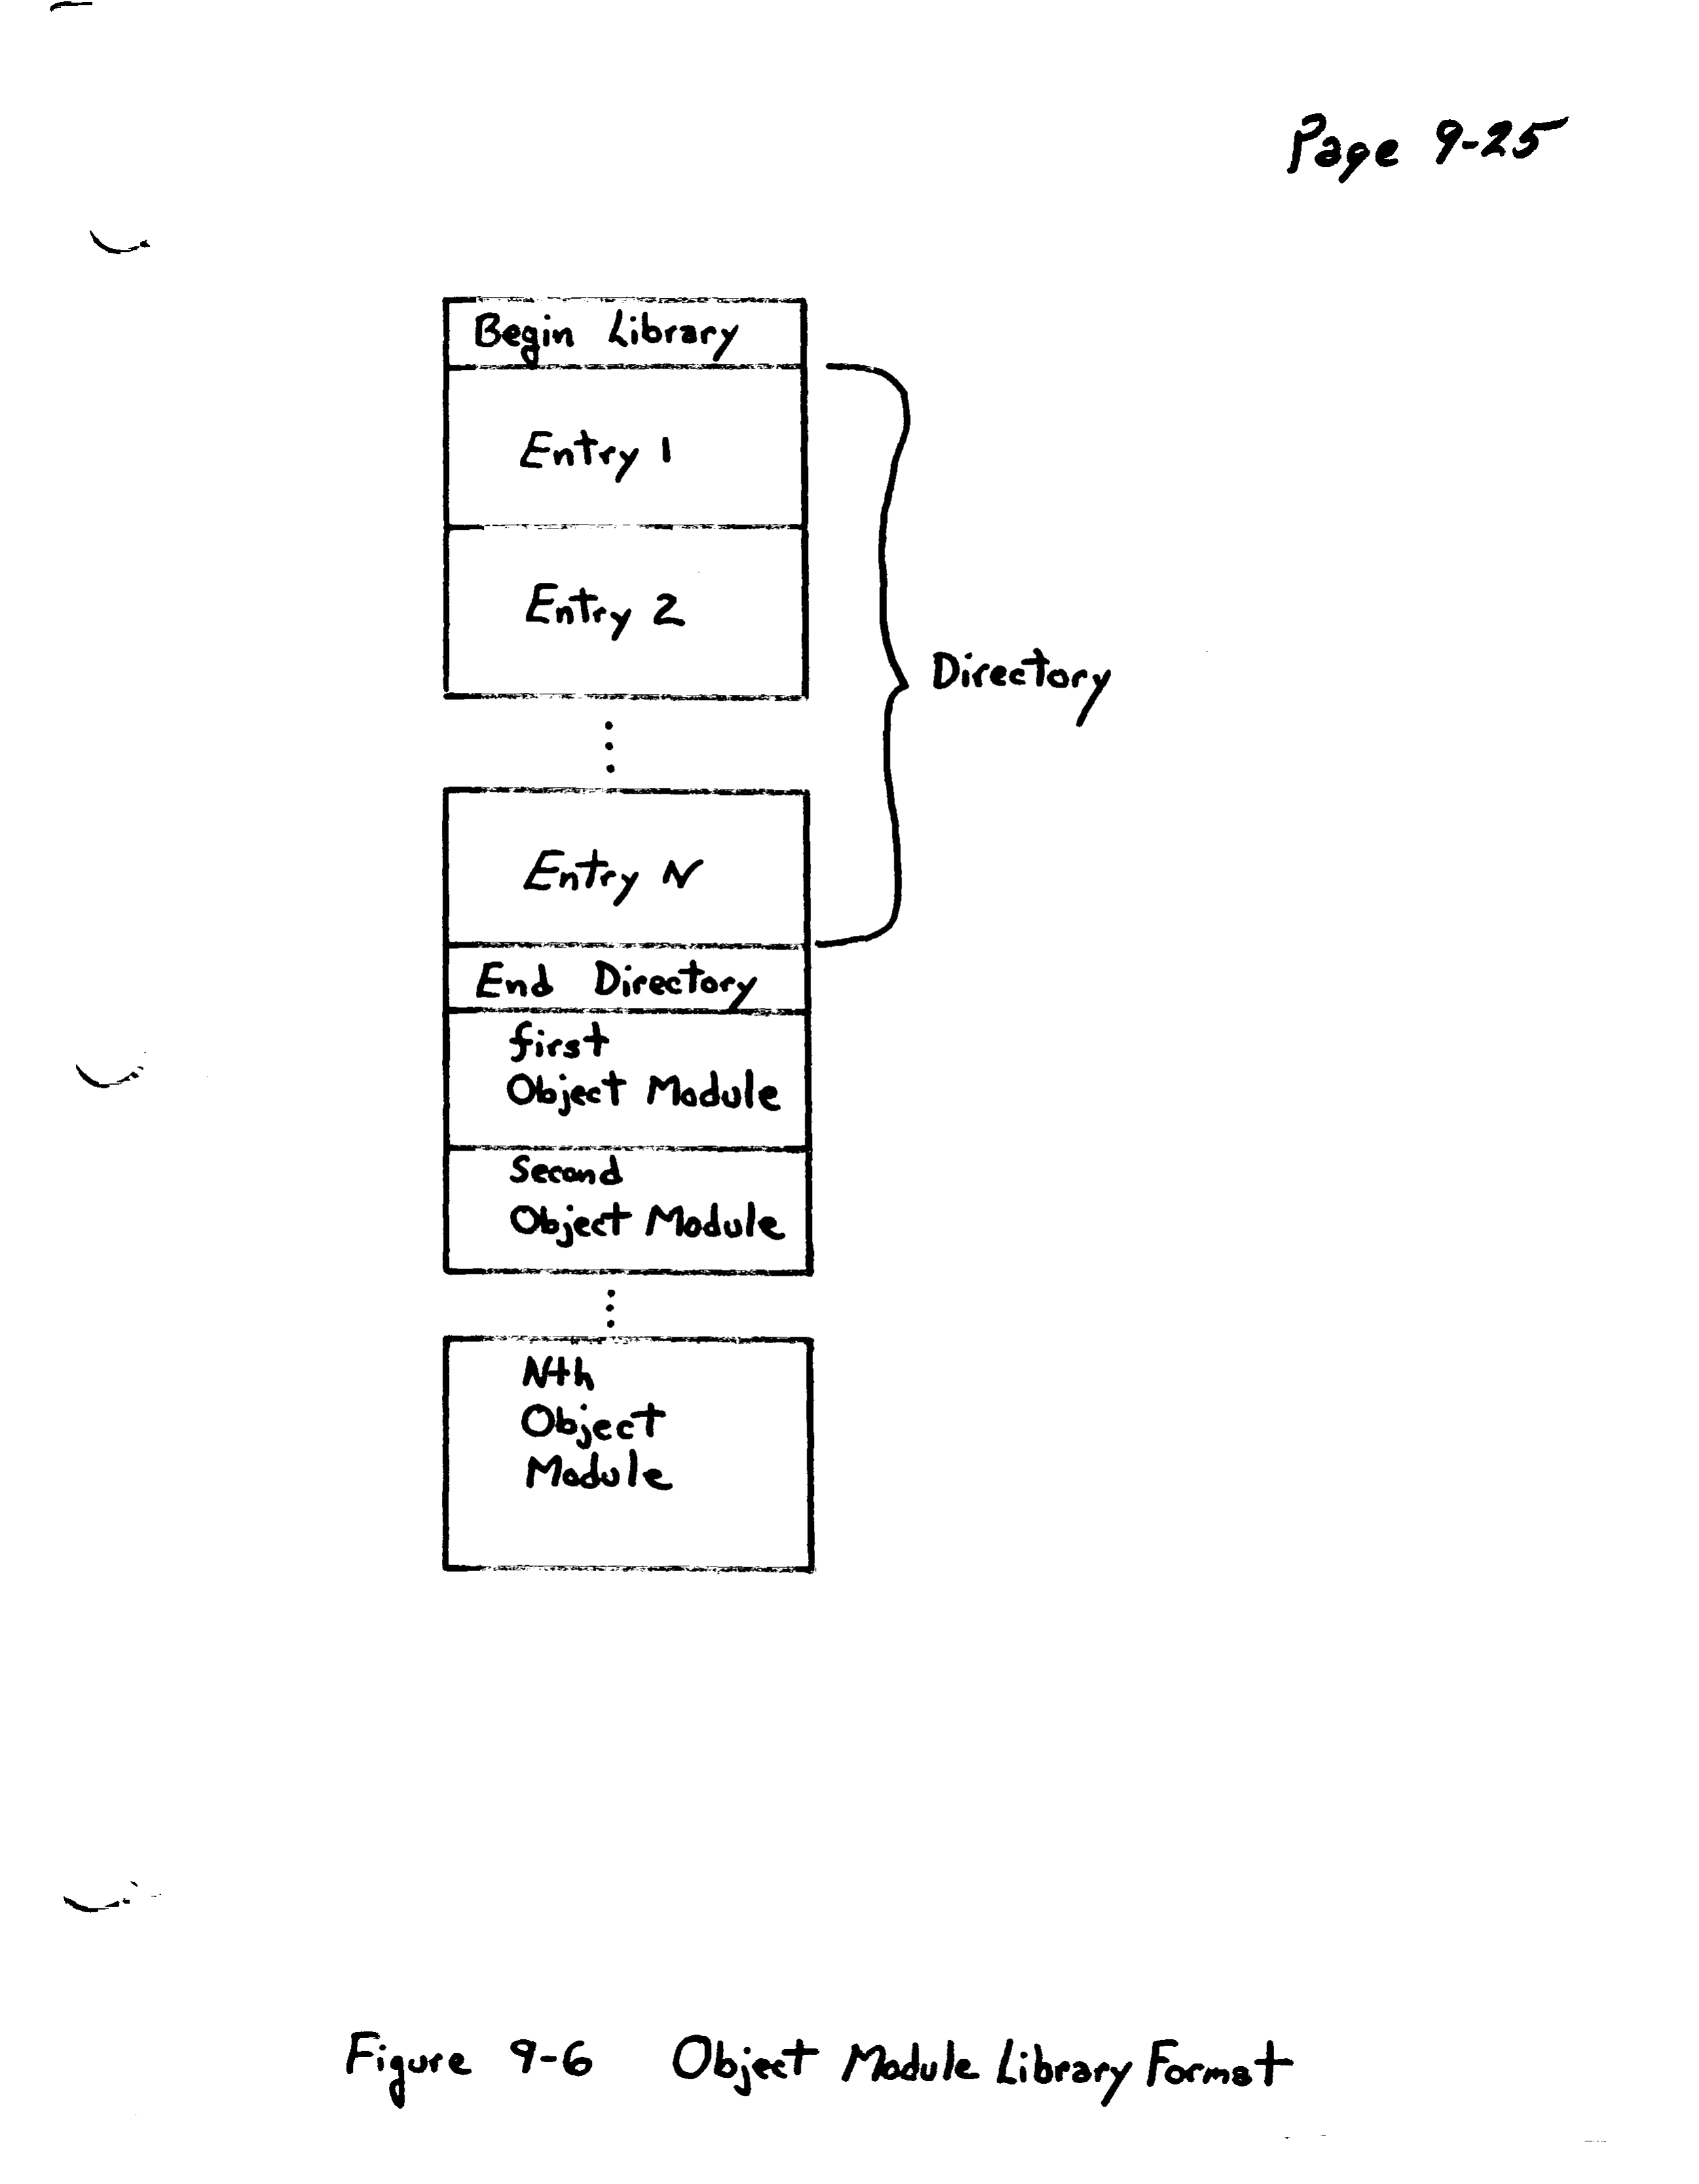 Page 9-25
Begin Library
Entry 1
Entry 2
Directory
Entry N
End Directory
first
Object Module
Second
Object Module
Nth
Object
Module
Figure 9-6 Object Module Library Format